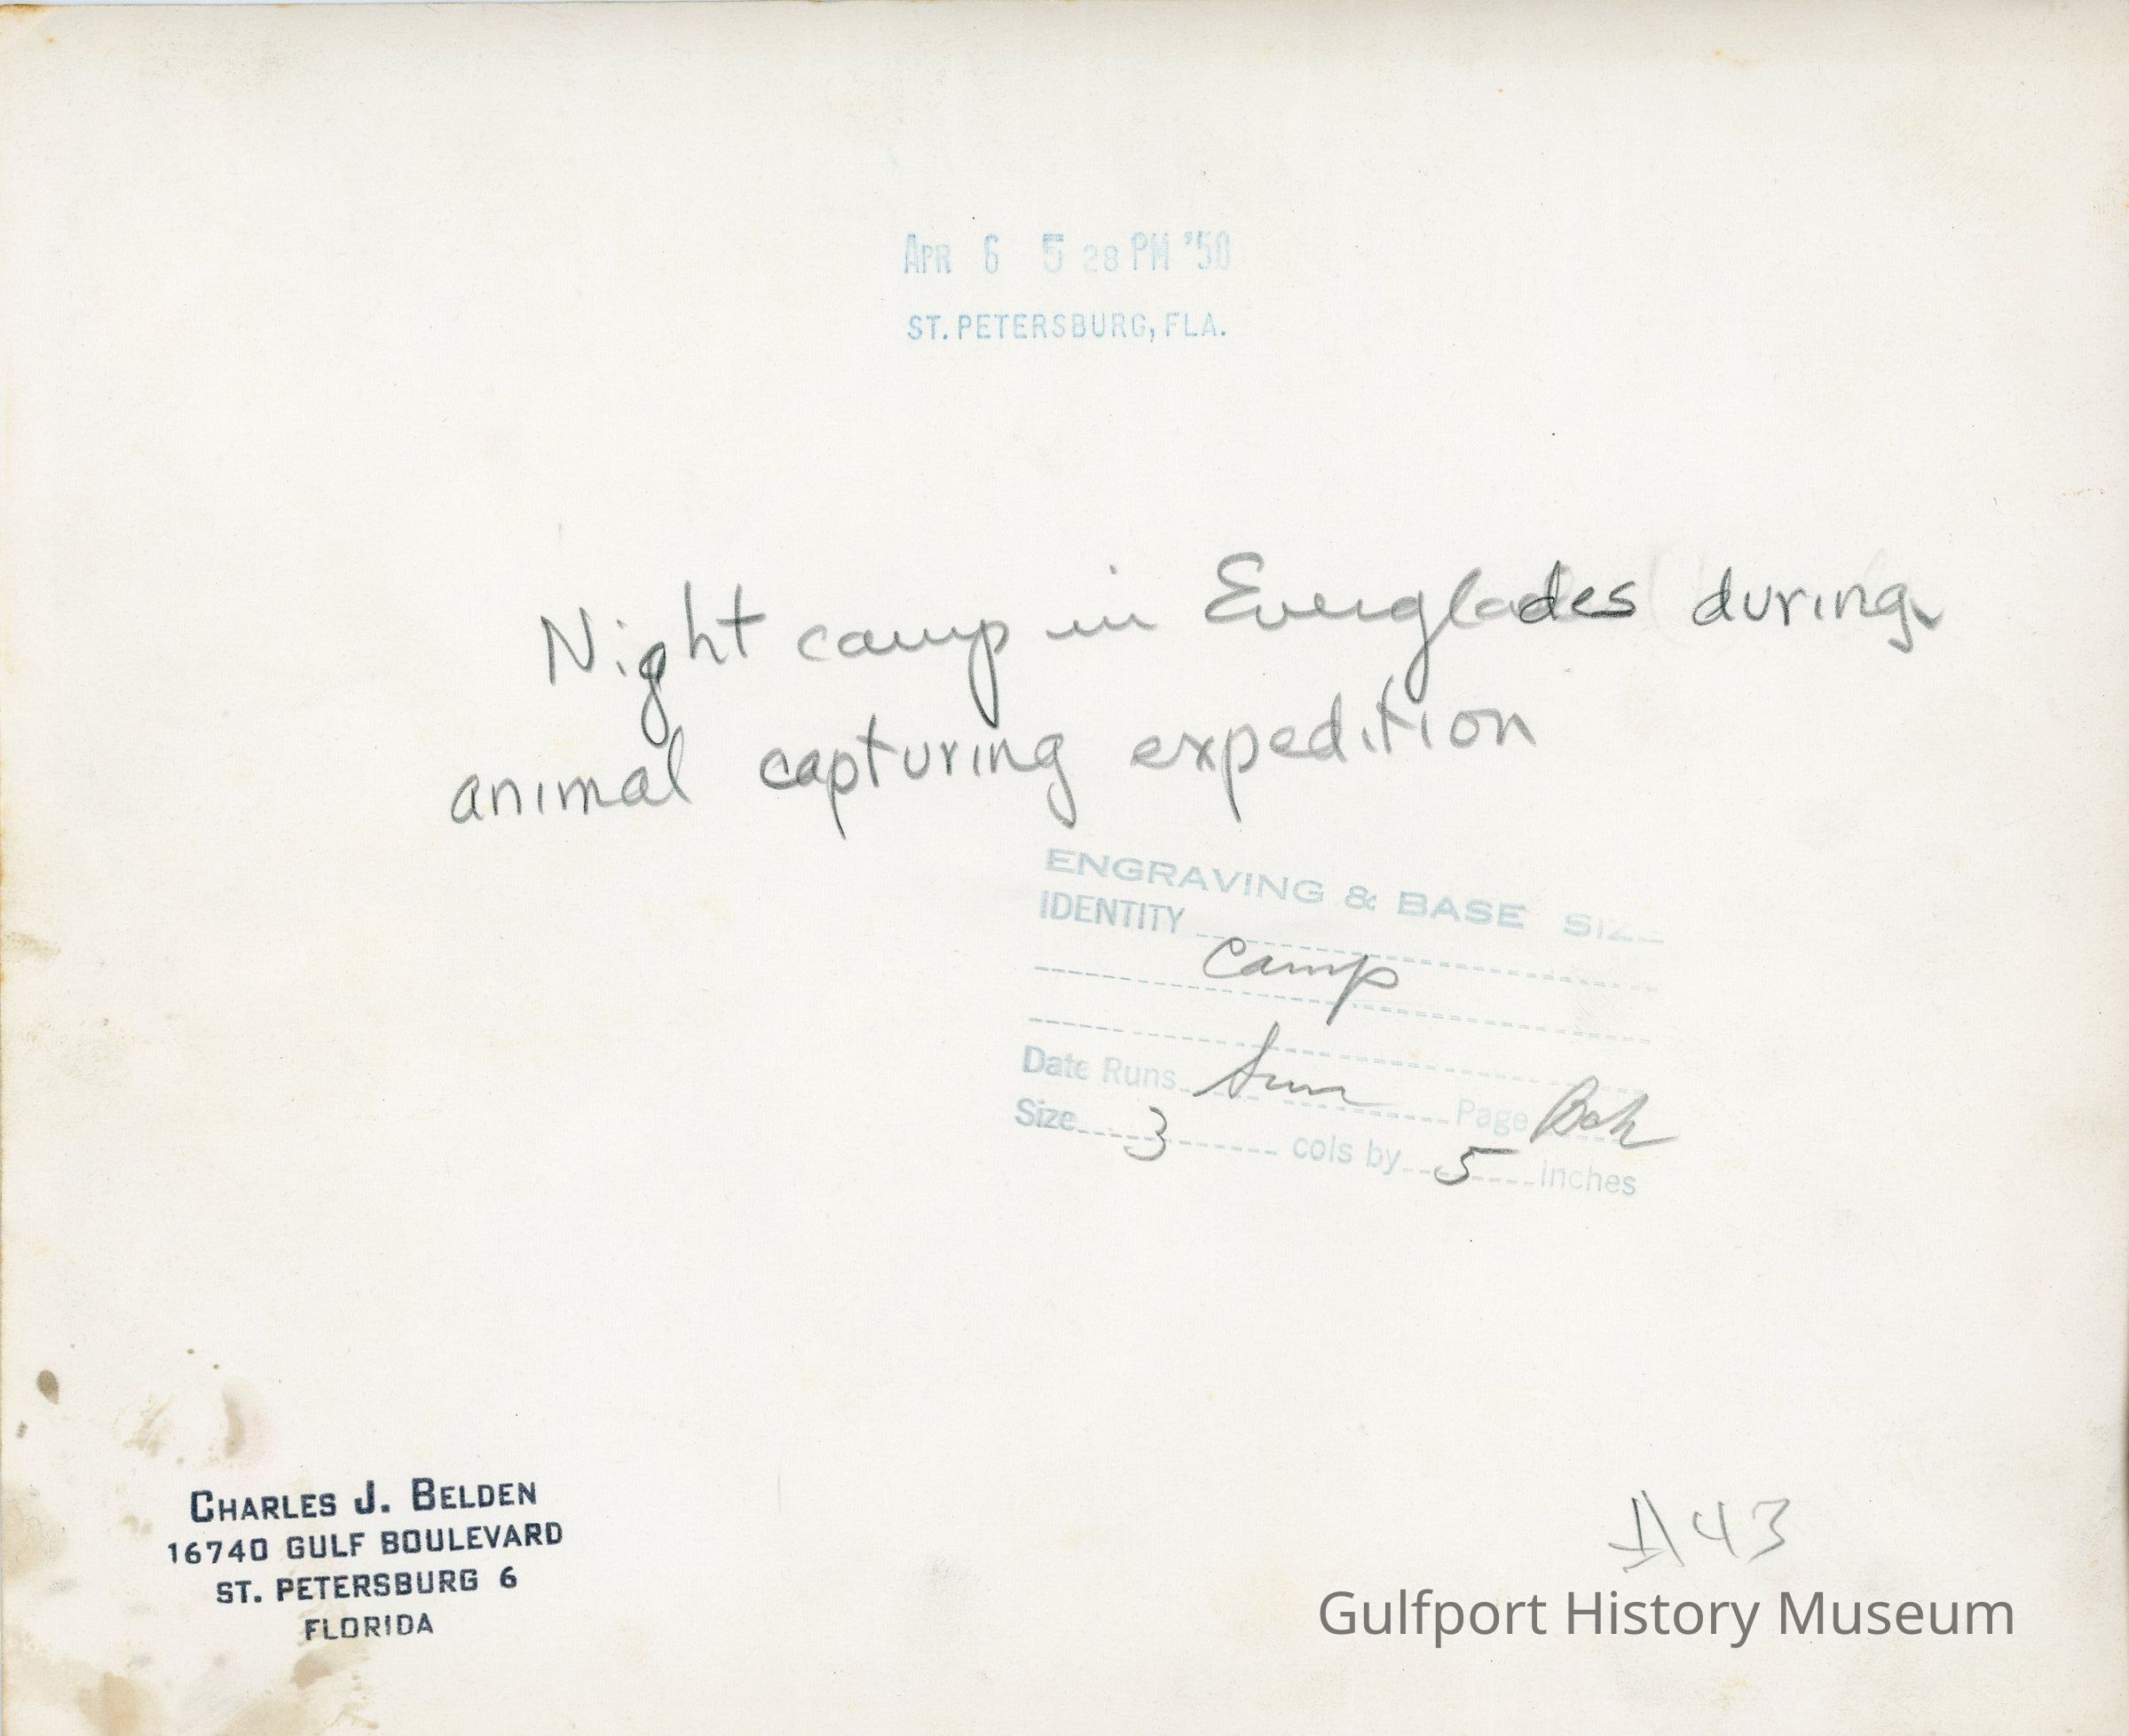 APR 6 5 28 PM '50
ST. PETERSBURG, FLA.
Night camp in Everglades during
animal capturing expedition
ENGRAVING & BASE SIZE
IDENTITY
Camp
Date Runs Sun Page
Size 3 cols by 5 inches
CHARLES J. BELDEN
16740 GULF BOULEVARD
ST. PETERSBURG 6
FLORIDA
43
Gulfport History Museum